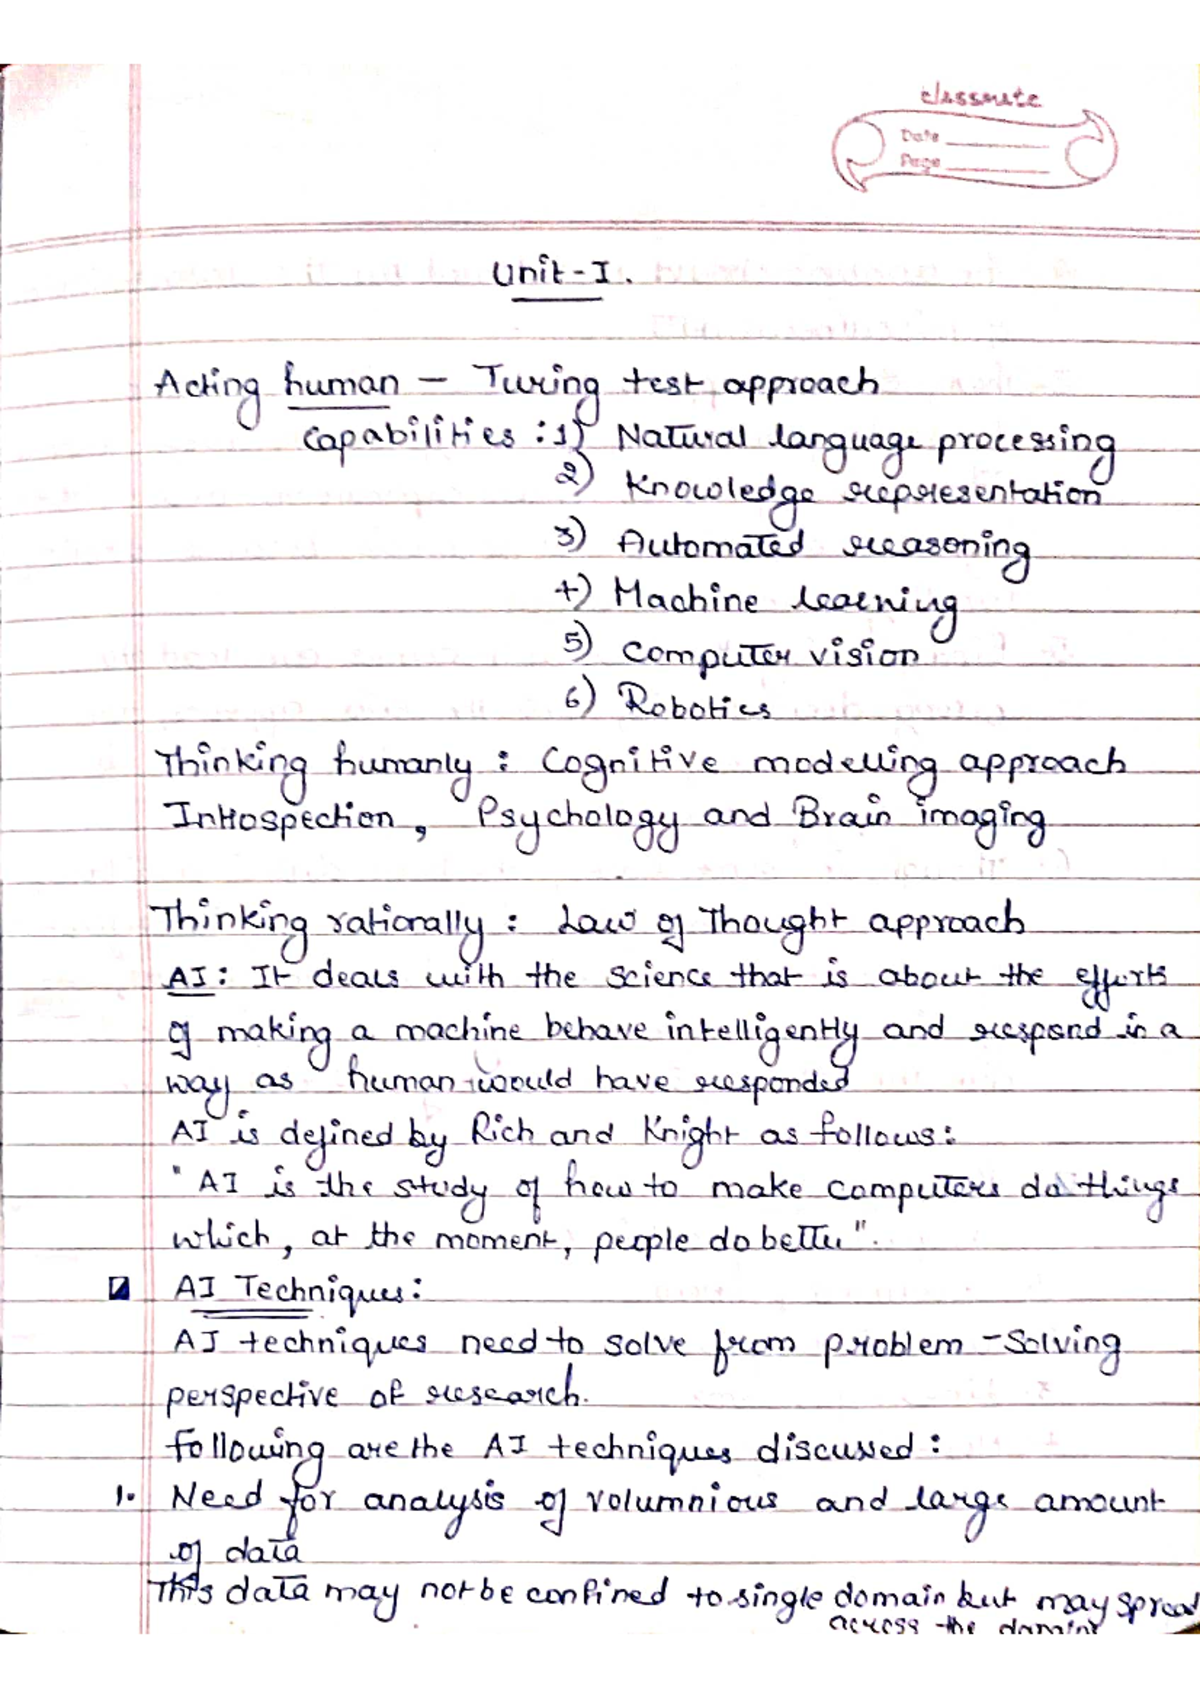 classmate
Date
Page
Unit-I.
Acting human – Turing test approach
Capabilities : 1) Natural language processing
2) Knowledge representation
3) Automated reasoning
4) Machine learning
5) Computer vision
6) Robotics
Thinking humanly : Cognitive modelling approach
Introspection, Psychology and Brain imaging
Thinking rationally : Law of Thought approach
AI : It deals with the science that is about the efforts
of making a machine behave intelligently and respond in a
way as human would have responded
AI is defined by Rich and Knight as follows:
"AI is the study of how to make computers do things
which, at the moment, people do better".
AI Techniques:
AI techniques need to solve from problem-solving
perspective of research.
Following are the AI techniques discussed :
1. Need for analysis of volumnious and large amount
of data
This data may not be confined to single domain but may spread
across the